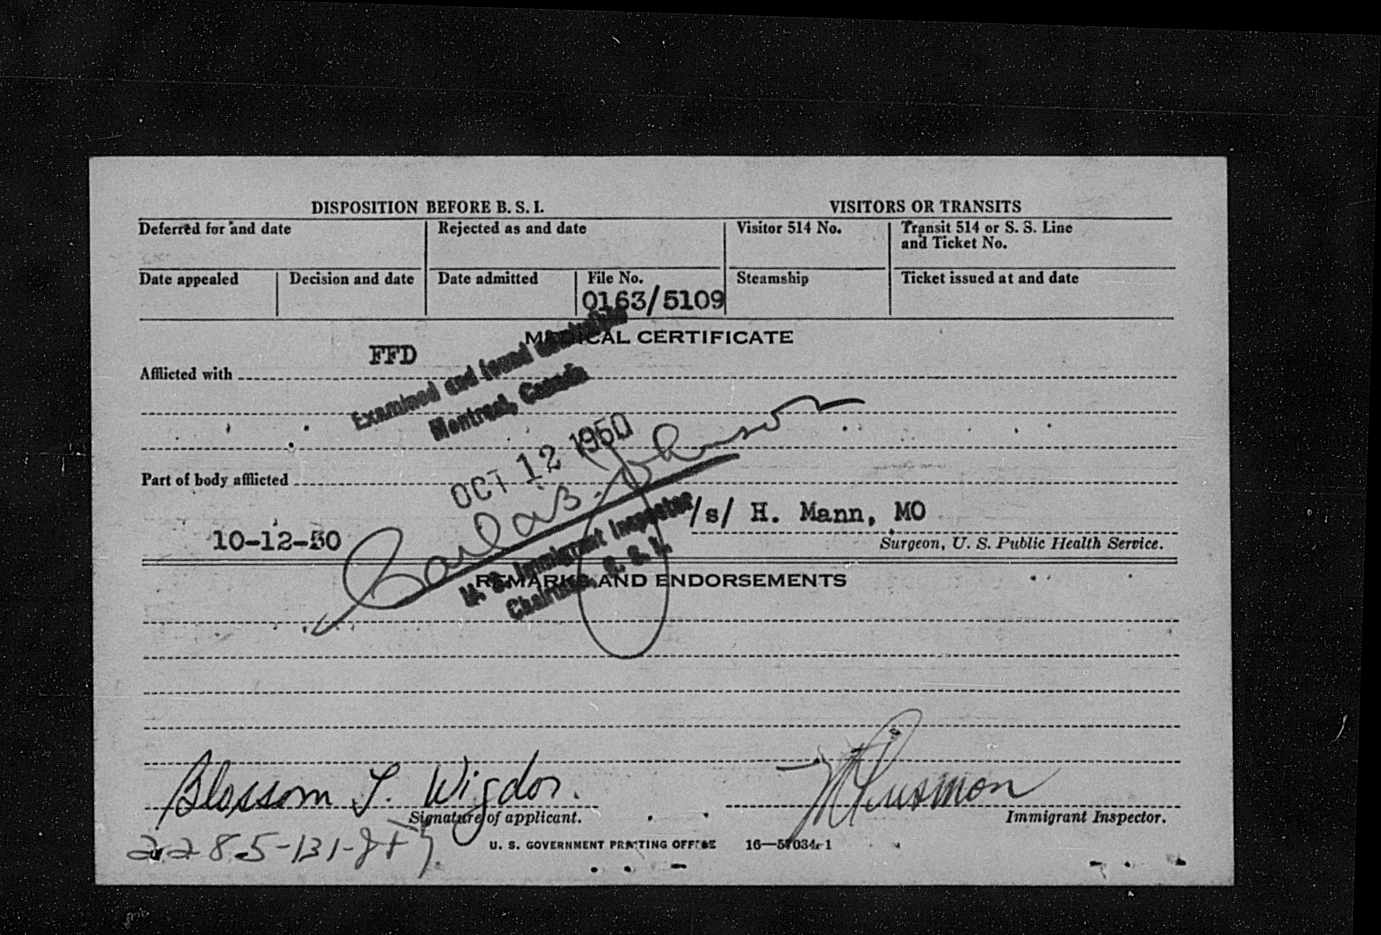 DISPOSITION BEFORE B. S. I.
VISITORS OR TRANSITS
Deferred for and date
Rejected as and date
Visitor 514 No.
Transit 514 or S. S. Line
and Ticket No.
Date appealed
Decision and date
Date admitted
File No.
0163/5109
Steamship
Ticket issued at and date
MEDICAL CERTIFICATE
FFD
Afflicted with
Examined and found
Montreal, Canada
OCT 12 1950
Johnson
Part of body afflicted
/s/ H. Mann, MO
10-12-50
Surgeon, U. S. Public Health Service.
U. S. Immigrant Inspector
Chairman, B. S. I.
REMARKS AND ENDORSEMENTS
Blossom T. Wigdor.
Signature of applicant.
Immigrant Inspector.
U. S. GOVERNMENT PRINTING OFFICE
16—57034-1